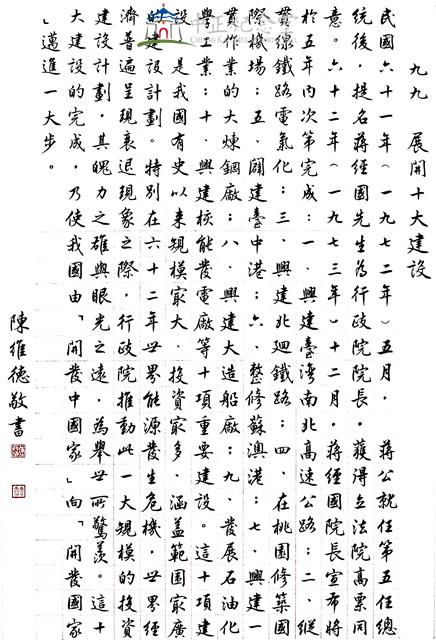 九九　展開十大建設
民國六十一年(一九七二年)五月，　蔣公就任第五任總
統後，提名蔣經國先生為行政院院長，獲得立法院高票同
意。六十二年(一九七三年)十二月，蔣經國院長宣布將
於五年內次第完成：一、興建臺灣南北高速公路；二、縱
貫線鐵路電氣化；三、興建北迴鐵路；四、在桃園修築國
際機場；五、闢建臺中港；六、整修蘇澳港；七、興建一
貫作業的大煉鋼廠；八、興建大造船廠；九、發展石油化
學工業；十、興建核能發電廠等十項重要建設。這十項建
設，是我國有史以來規模最大、投資最多、涵蓋範圍最廣
的建設計劃。特別在六十二年世界能源發生危機，世界經
濟普遍呈現衰退現象之際，行政院推動此一大規模的投資
建設計劃，其魄力之雄與眼光之遠，為舉世所驚羨。這十
大建設的完成，乃使我國由「開發中國家」向「開發國家
」邁進一大步。
陳維德敬書